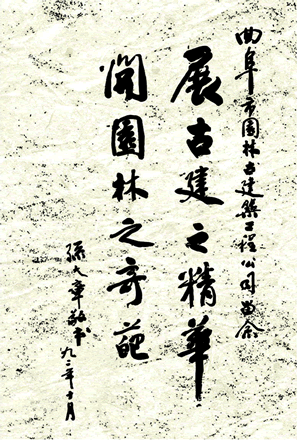 曲阜市園林古建築工程公司留念
展古建之精華
開園林之奇葩
孫大章敬书
九二年十月